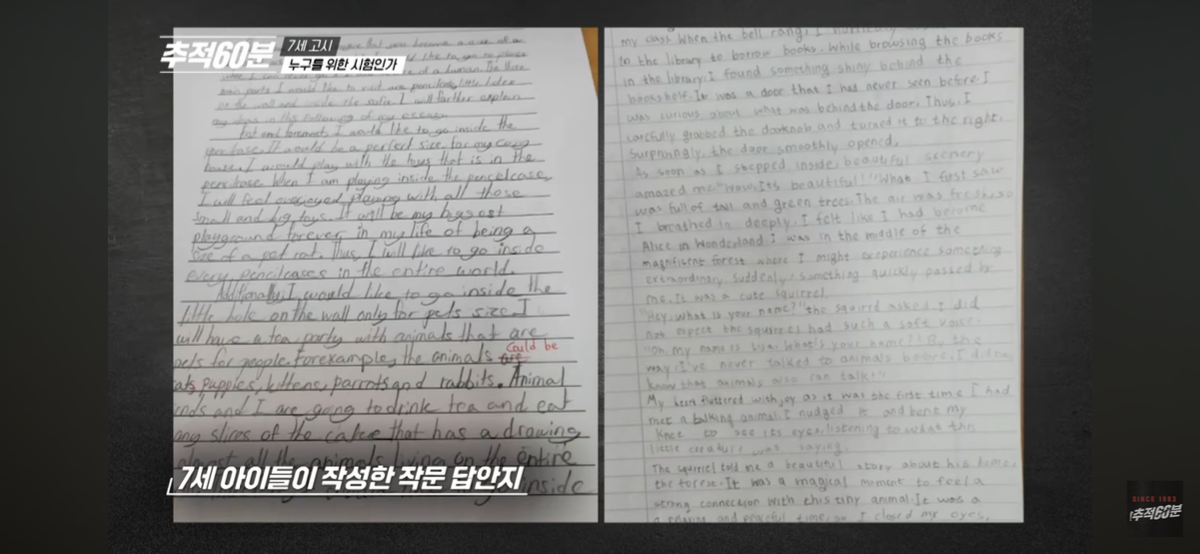 추적60분
7세 고시
누구를 위한 시험인가
that you become a size of a
like to go to
of a human. The three
main parts I would like to visit are pencilcase, little holes
on the wall and inside the sofa. I will farther explain
my steps in the following of my essay.
First and foremost, I would like to go inside the
pencilcase. It would be a perfect size for my cozy
house. I would play with the toys that is in the
pencilcase. When I am playing inside the pencelcase,
I will feel overjoyed playing with all those
small and big toys. It will be my biggest
playground forever in my life of being a
size of a pet rat. Thus, I will like to go inside
every pencilcases in the entire world.
Additionally, I would like to go inside the
little hole on the wall only for pets size. I
will have a tea party with animals that are
pets for people. Forexample, the animals are could be
cats, puppies, kittens, parrots and rabbits. Animal
friends and I are going to drink tea and eat
any slices of the cake that has a drawing
almost all the animals living on the entire
inside
my class. When the bell rang, I hurriedly
to the library to borrow books. While browsing the books
in the library, I found something shiny behind the
bookshelf. It was a door that I had never seen before. I
was curious about what was behind the door. Thus, I
carefully grabbed the doorknob and turned it to the right.
Surprisingly, the door smoothly opened.
As soon as I stepped inside, beautiful scenery
amazed me. "Wow, It's beautiful!" What I first saw
was full of tall and green trees. The air was fresh, so
I breathed in deeply. I felt like I had become
Alice in Wonderland. I was in the middle of the
magnificent forest where I might experience something
extraordinary. Suddenly, something quickly passed by
me. It was a cute squirrel.
"Hey, what is your name?" the squirrel asked. I did
not expect the squirrel had such a soft voice.
"Oh, my name is Lisa. What's your name? By the
way, I've never talked to animals before. I didn't
know that animals also can talk!"
My heart fluttered with joy as it was the first time I had
met a talking animal. I nudged it and bent my
knee to see its eyes, listening to what this
little creature was saying.
The squirrel told me a beautiful story about his home,
the forest. It was a magical moment to feel a
strong connection with this tiny animal. It was a
and peaceful time, so I closed my eyes,
7세 아이들이 작성한 작문 답안지
SINCE 1983
추적60분